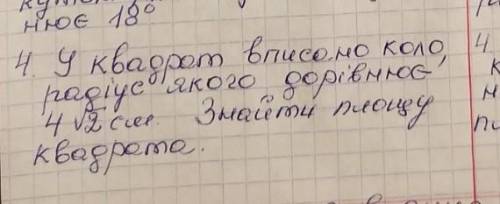 нює 18°
4. У квадрат вписано коло,
радіус якого дорівнює
4√2 см. Знайти площу
квадрата.
4.
к
н